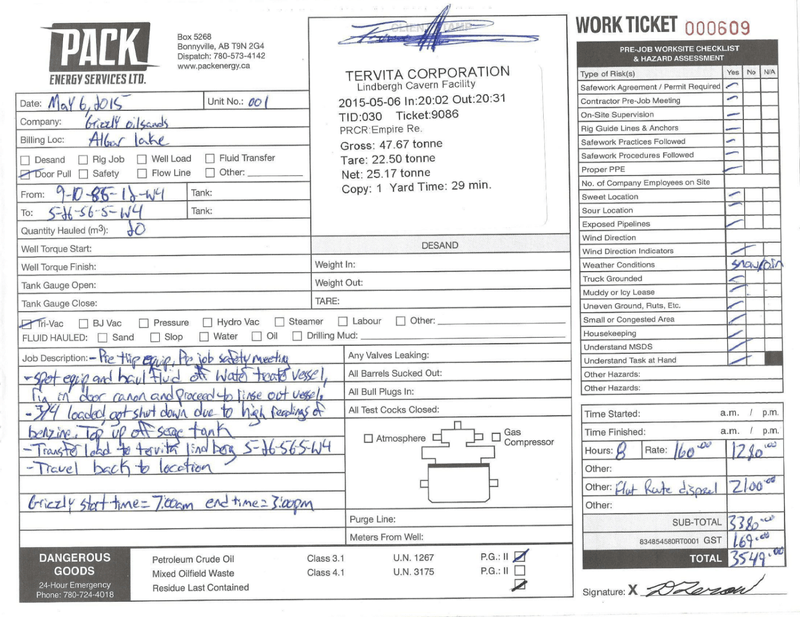 PACK
ENERGY SERVICES LTD.
Box 5268
Bonnyville, AB T9N 2G4
Dispatch: 780-573-4142
www.packenergy.ca
CLIENT STAMP
TERVITA CORPORATION
Lindbergh Cavern Facility
2015-05-06 In:20:02 Out:20:31
TID:030 Ticket:9086
PRCR:Empire Re.
Gross: 47.67 tonne
Tare: 22.50 tonne
Net: 25.17 tonne
Copy: 1 Yard Time: 29 min.
WORK TICKET 000609
Date: May 6, 2015 Unit No.: 001
Company: Grizzly oilsands
Billing Loc: Algar lake
Desand Rig Job Well Load Fluid Transfer
Door Pull Safety Flow Line Other:
From: 9-10-85-12-W4 Tank:
To: 5-26-56-5-W4 Tank:
Quantity Hauled (m³): 20
Well Torque Start:
Well Torque Finish:
Tank Gauge Open:
Tank Gauge Close:
DESAND
Weight In:
Weight Out:
TARE:
Tri-Vac BJ Vac Pressure Hydro Vac Steamer Labour Other:
FLUID HAULED: Sand Slop Water Oil Drilling Mud:
Job Description: - Pre trip equip, Pre job safety meeting
- spot equip and haul fluid off water treate vessel,
rig in door canon and proceed to rinse out vessel.
- 3/4 loaded, got shut down due to high readings of
benzine. Top up off serge tank
- Transfer load to tervita lindberg 5-26-56-5-W4
- Travel back to location
Grizzly start time = 7:00am end time = 3:00pm
Any Valves Leaking:
All Barrels Sucked Out:
All Bull Plugs In:
All Test Cocks Closed:
Atmosphere
Gas Compressor
Purge Line:
Meters From Well:
DANGEROUS GOODS
24-Hour Emergency
Phone: 780-724-4018
Petroleum Crude Oil Class 3.1 U.N. 1267 P.G.: II
Mixed Oilfield Waste Class 4.1 U.N. 3175 P.G.: II
Residue Last Contained
PRE-JOB WORKSITE CHECKLIST
& HAZARD ASSESSMENT
Type of Risk(s) Yes No N/A
Safework Agreement / Permit Required
Contractor Pre-Job Meeting
On-Site Supervision
Rig Guide Lines & Anchors
Safework Practices Followed
Safework Procedures Followed
Proper PPE
No. of Company Employees on Site
Sweet Location
Sour Location
Exposed Pipelines
Wind Direction
Wind Direction Indicators
Weather Conditions snow/rain
Truck Grounded
Muddy or Icy Lease
Uneven Ground, Ruts, Etc.
Small or Congested Area
Housekeeping
Understand MSDS
Understand Task at Hand
Other Hazards:
Other Hazards:
Time Started: a.m. / p.m.
Time Finished: a.m. / p.m.
Hours: 8 Rate: 160.00 1280.00
Other:
Other: Flat Rate disposal 2100.00
Other:
SUB-TOTAL 3380.00
834854580RT0001 GST 169.00
TOTAL 3549.00
Signature: X